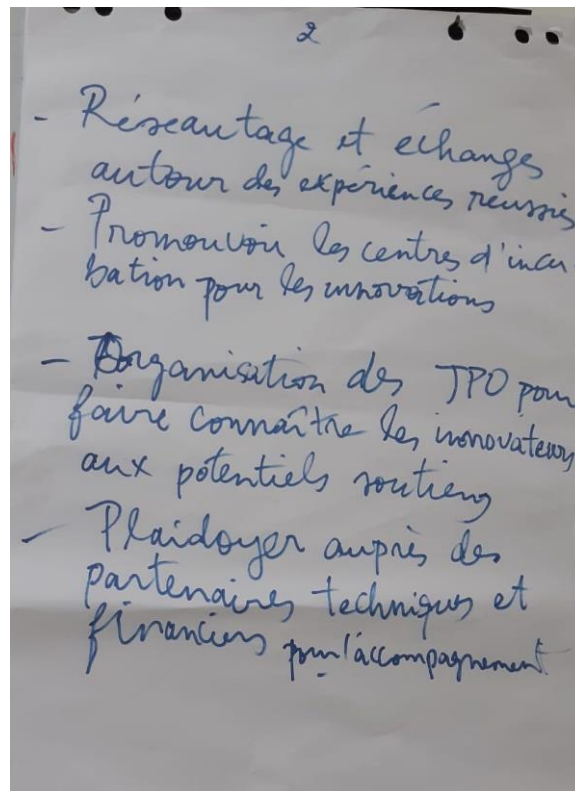 2
- Réseautage et échanges
autour des expériences reussies
- Promouvoir les centres d'incu
bation pour les innovations
- Organisation des JPO pour
faire connaître les innovateurs
aux potentiels soutiens
- Plaidoyer auprès des
partenaires techniques et
financiers pour l'accompagnement